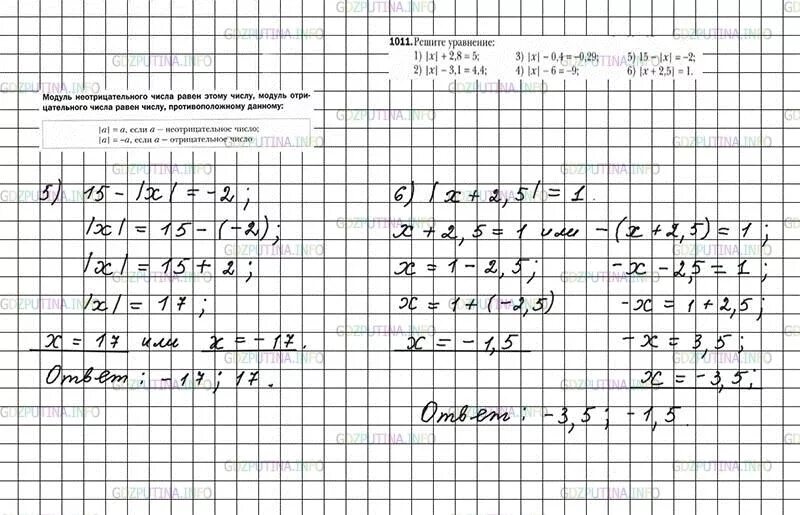 GDZPUTINA.INFO
1011. Решите уравнение:
1) |x| + 2,8 = 5; 3) |x| − 0,4 = −0,29; 5) 15 − |x| = −2;
2) |x| − 3,1 = 4,4; 4) |x| − 6 = −9; 6) |x + 2,5| = 1.
Модуль неотрицательного числа равен этому числу, модуль отри-
цательного числа равен числу, противоположному данному:
|a| = a, если a − неотрицательное число;
|a| = −a, если a − отрицательное число
5) 15 − |x| = −2;
|x| = 15 − (−2);
|x| = 15 + 2;
|x| = 17;
x = 17 или x = −17.
Ответ: −17; 17.
6) |x + 2,5| = 1.
x + 2,5 = 1 или −(x + 2,5) = 1;
x = 1 − 2,5; −x − 2,5 = 1;
x = 1 + (−2,5) −x = 1 + 2,5;
x = −1,5 −x = 3,5;
x = −3,5;
Ответ: −3,5; −1,5.